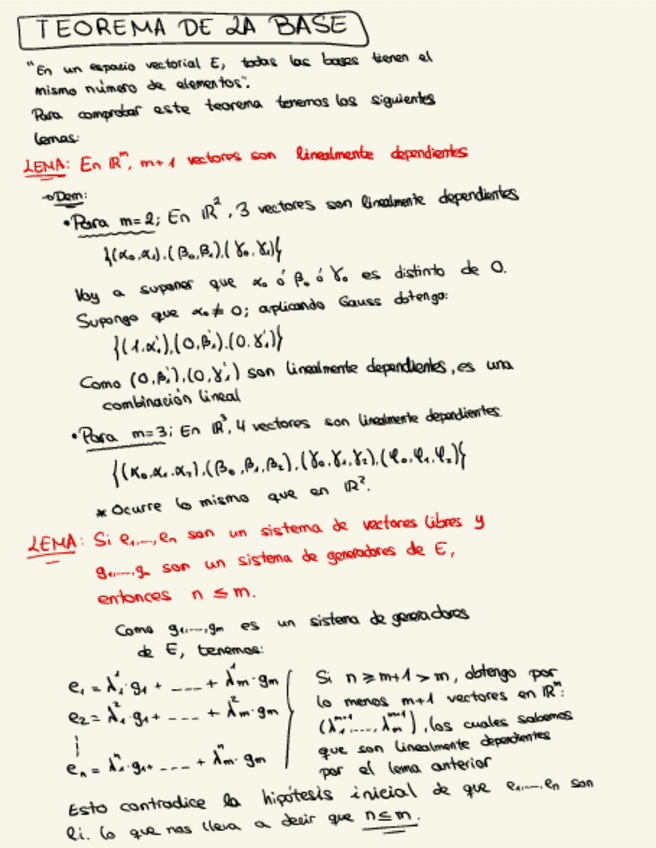 TEOREMA DE LA BASE
"En un espacio vectorial E, todas las bases tienen el
mismo número de elementos".
Para comprobar este teorema tenemos los siguientes
lemas:
LEMA: En ℝᵐ, m+1 vectores son linealmente dependientes
→Dem:
• Para m=2; En ℝ², 3 vectores son linealmente dependientes
{(α₀,α₁),(β₀,β₁),(γ₀,γ₁)}
Voy a suponer que α₀ ó β₀ ó γ₀ es distinto de 0.
Supongo que α₀≠0; aplicando Gauss obtengo:
{(1,α₁'),(0,β₁'),(0,γ₁')}
Como (0,β₁'),(0,γ₁') son linealmente dependientes, es una
combinación lineal
• Para m=3; En ℝ³, 4 vectores son linealmente dependientes
{(α₀,α₁,α₂),(β₀,β₁,β₂),(γ₀,γ₁,γ₂),(φ₀,φ₁,φ₂)}
* Ocurre lo mismo que en ℝ².
LEMA: Si e₁,...,eₙ son un sistema de vectores libres y
g₁,...,gₘ son un sistema de generadores de E,
entonces n ≤ m.
Como g₁,...,gₘ es un sistema de generadores
de E, tenemos:
e₁ = λ₁¹·g₁ + ---- + λₘ¹·gₘ
e₂ = λ₁²·g₁ + ---- + λₘ²·gₘ
eₙ = λ₁ⁿ·g₁ + ---- + λₘⁿ·gₘ
Si n ≥ m+1 > m, obtengo por
lo menos m+1 vectores en ℝᵐ:
(λ₁ᵐ⁺¹,...,λₘᵐ⁺¹), los cuales sabemos
que son linealmente dependientes
por el lema anterior
Esto contradice la hipótesis inicial de que e₁,...,eₙ son
li. lo que nos lleva a decir que n≤m.